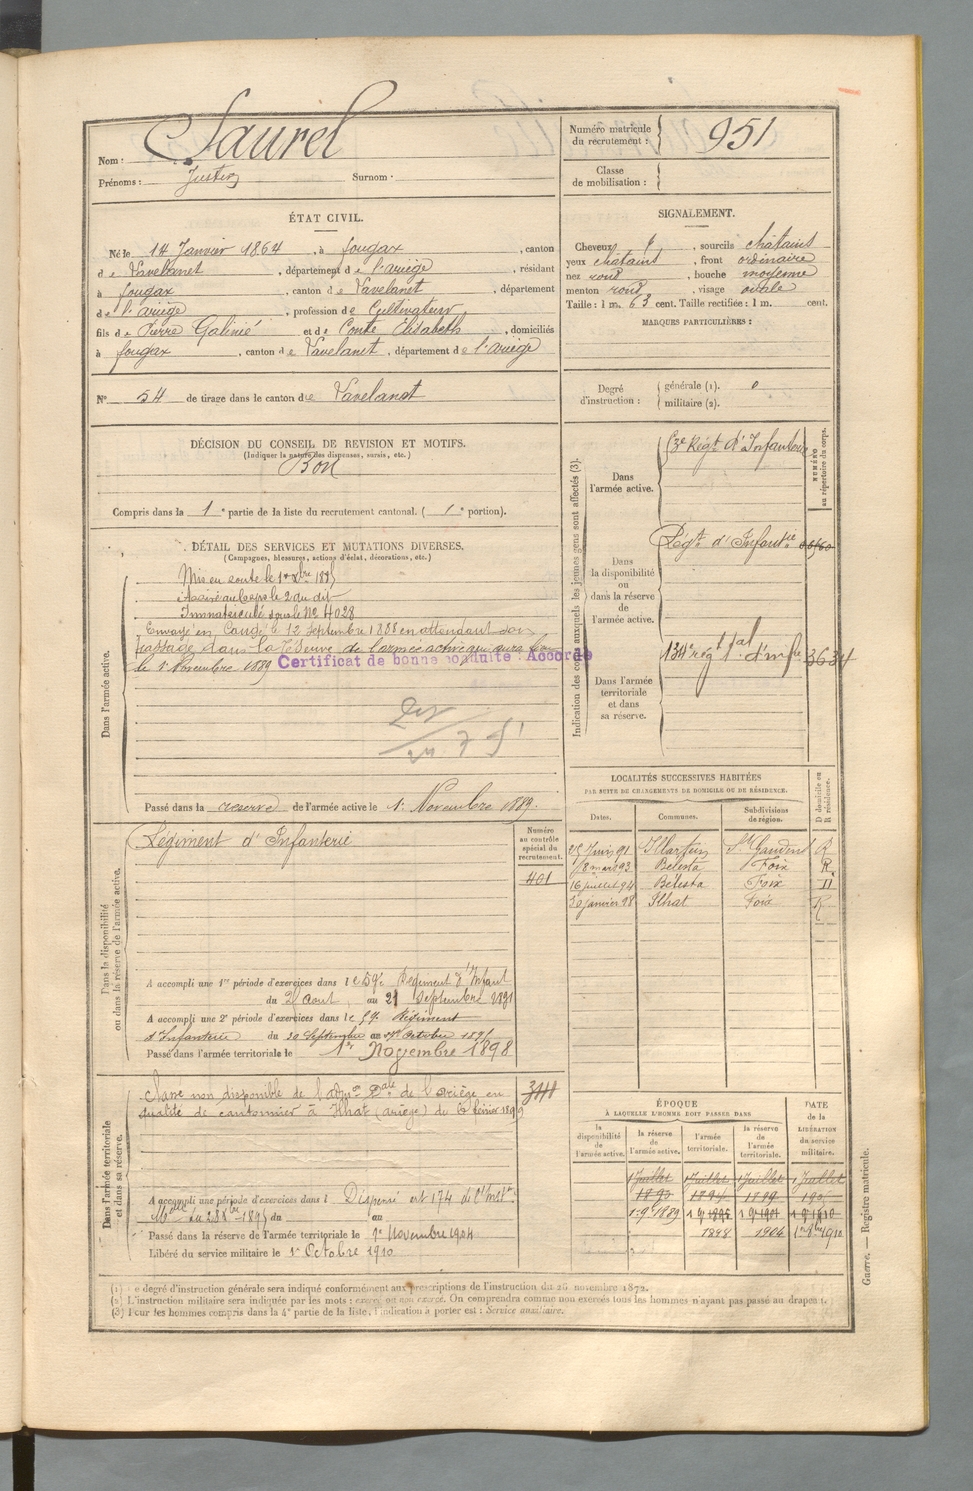 Nom : Saurel
Prénoms : Justin Surnom :
Numéro matricule du recrutement : 951
Classe de mobilisation :
ÉTAT CIVIL.
Né le 14 Janvier 1864, à fougax, canton
de Vavelanet, département de l'ariège, résidant
à fougax, canton de Vavelanet, département
de l'ariège, profession de Cultivateur
fils de Pierre Galinié et de Comte Elisabeth, domiciliés
à fougax, canton de Vavelanet, département de l'ariège
N° 54 de tirage dans le canton de Vavelanet
SIGNALEMENT.
Cheveux, sourcils châtains
yeux châtains, front ordinaire
nez rond, bouche moyenne
menton rond, visage ovale
Taille : 1 m. 63 cent. Taille rectifiée : 1 m. cent.
MARQUES PARTICULIÈRES :
Degré d'instruction : générale (1). 0
militaire (2).
DÉCISION DU CONSEIL DE REVISION ET MOTIFS.
(Indiquer la nature des dispenses, sursis, etc.)
Bon
Compris dans la 1e partie de la liste du recrutement cantonal. ( 1e portion).
DÉTAIL DES SERVICES ET MUTATIONS DIVERSES.
(Campagnes, blessures, actions d'éclat, décorations, etc.)
Dans l'armée active.
Mis en route le 1er Xbre 1885
Arrivé au Corps le 2 du dit
Immatriculé sous le No 4028
Envoyé en Congé le 12 Septembre 1888 en attendant son
passage dans la Réserve de l'armée active qui aura lieu
le 1er Novembre 1889 Certificat de bonne conduite Accordé
Passé dans la réserve de l'armée active le 1er Novembre 1889.
Indication des corps auxquels les jeunes gens sont affectés (3).
NUMÉRO au répertoire du corps.
Dans l'armée active.
Régt d'Infanterie
Dans la disponibilité ou dans la réserve de l'armée active.
Régt d'Infantie
Dans l'armée territoriale et dans sa réserve.
134e régt tal d'infie 3634
LOCALITÉS SUCCESSIVES HABITÉES
PAR SUITE DE CHANGEMENTS DE DOMICILE OU DE RÉSIDENCE.
Dates. Communes. Subdivisions de région. D domicile ou R résidence.
25 Juin 91 St Martin St Gaudens R
18 mars 93 Bélesta Foix R.
16 juillet 94 Bélesta Foix D
30 janvier 98 Ilhat Foix R
Dans la disponibilité ou dans la réserve de l'armée active.
Régiment d'Infanterie
Numéro au contrôle spécial du recrutement.
401
A accompli une 1re période d'exercices dans le 59e Régiment d'Infant
du 25 Aout au 21 Septembre 1891
A accompli une 2e période d'exercices dans le 59 Régiment
d'Infanterie du 30 Septembre au 27 Octobre 1895
Passé dans l'armée territoriale le 1er Novembre 1898
Dans l'armée territoriale et dans sa réserve.
Classé non disponible de l'admon Dale de l'Ariège en
qualité de cantonnier à Ilhat (ariège) du 6 février 1899
A accompli une période d'exercices dans l Dispensé art 174 de l'Inston
Mlle du 28 Xbre 1895 du au
Passé dans la réserve de l'armée territoriale le 1er Novembre 1904
Libéré du service militaire le 1er Octobre 1910
ÉPOQUE
À LAQUELLE L'HOMME DOIT PASSER DANS
DATE de la LIBÉRATION du service militaire.
la disponibilité de l'armée active. la réserve de l'armée active. l'armée territoriale. la réserve de l'armée territoriale.
1 Juillet 1 Juillet 1 Juillet 1 Juillet
1-9 1889
1898 1904 1er 8bre 1910
Guerre. — Registre matricule.
(1) Le degré d'instruction générale sera indiqué conformément aux prescriptions de l'instruction du 26 novembre 1872.
(2) L'instruction militaire sera indiquée par les mots : exercé ou non exercé. On comprendra comme non exercés tous les hommes n'ayant pas passé au drapeau.
(3) Pour les hommes compris dans la 4e partie de la liste, l'indication à porter est : Service auxiliaire.